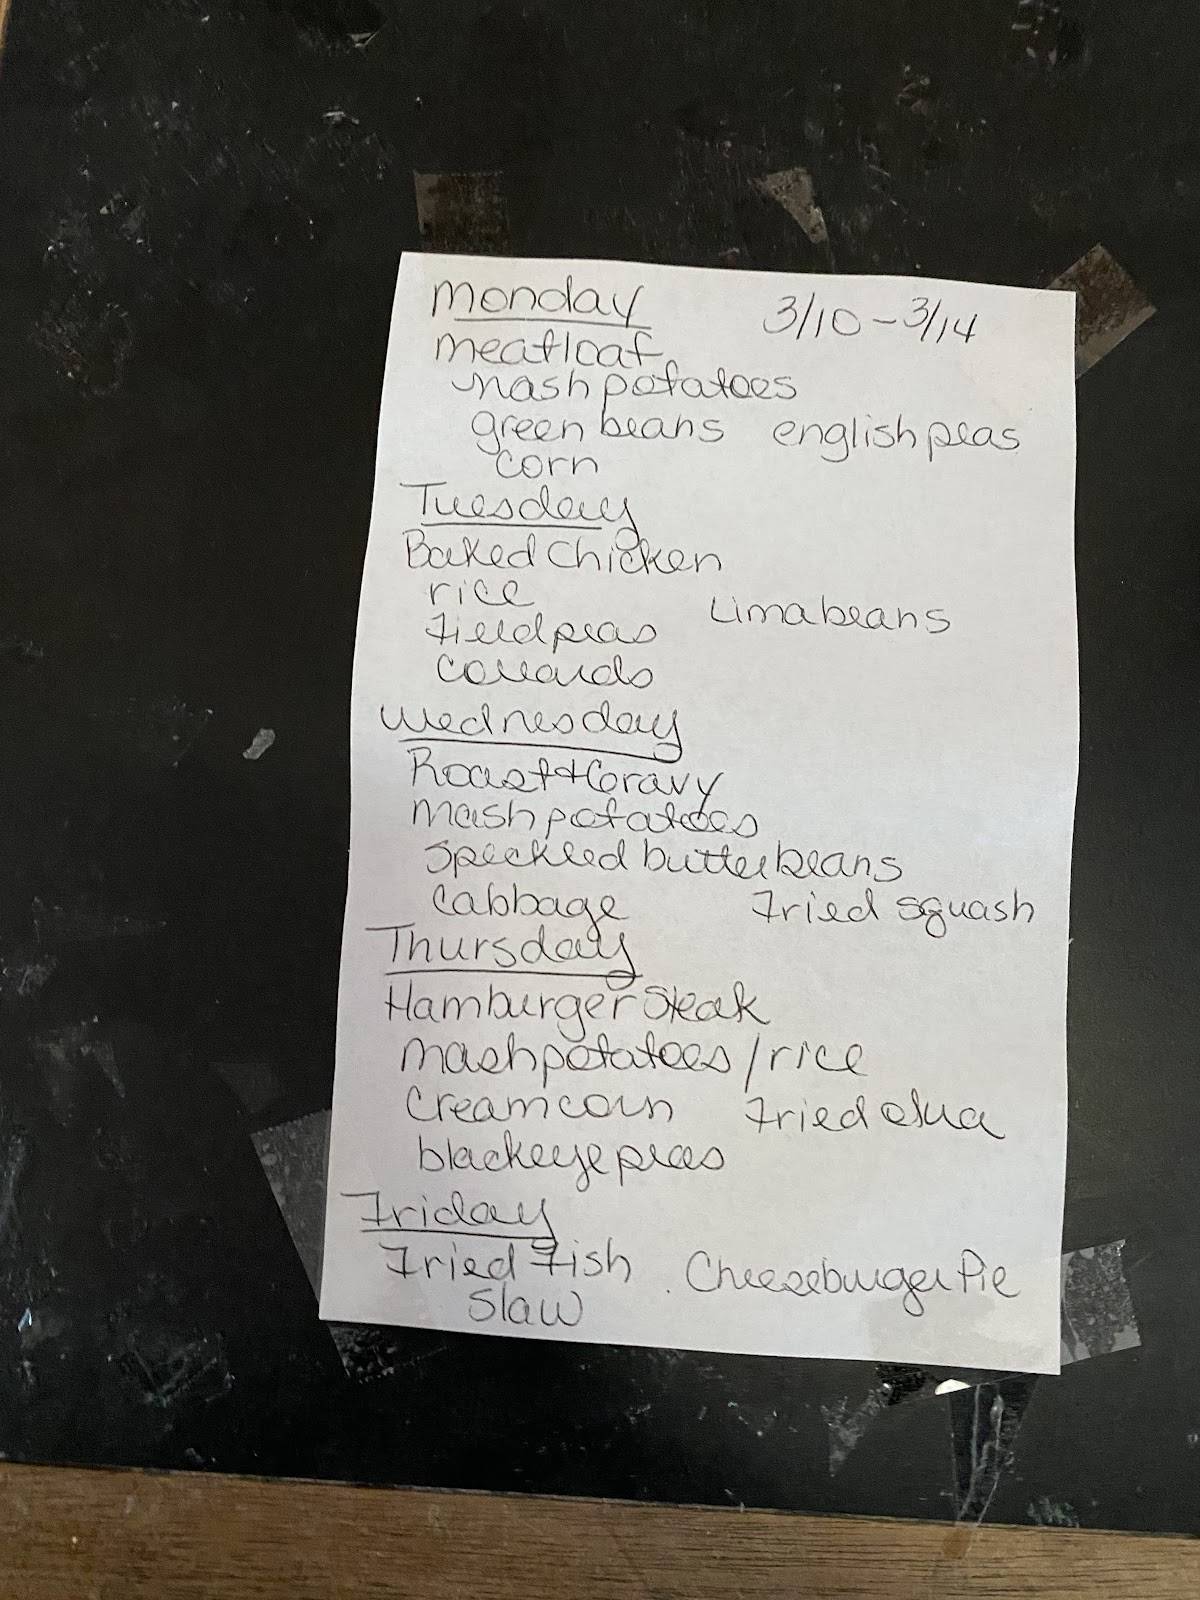 Monday 3/10 - 3/14
meatloaf
mash potatoes
green beans english peas
corn
Tuesday
Baked Chicken
rice
Lima beans
Field peas
Collards
Wednesday
Roast + Gravy
Mash potatoes
Speckled butterbeans
Cabbage Fried squash
Thursday
Hamburger Steak
mash potatoes / rice
Cream corn Fried okra
blackeye peas
Friday
Fried Fish Cheeseburger Pie
Slaw